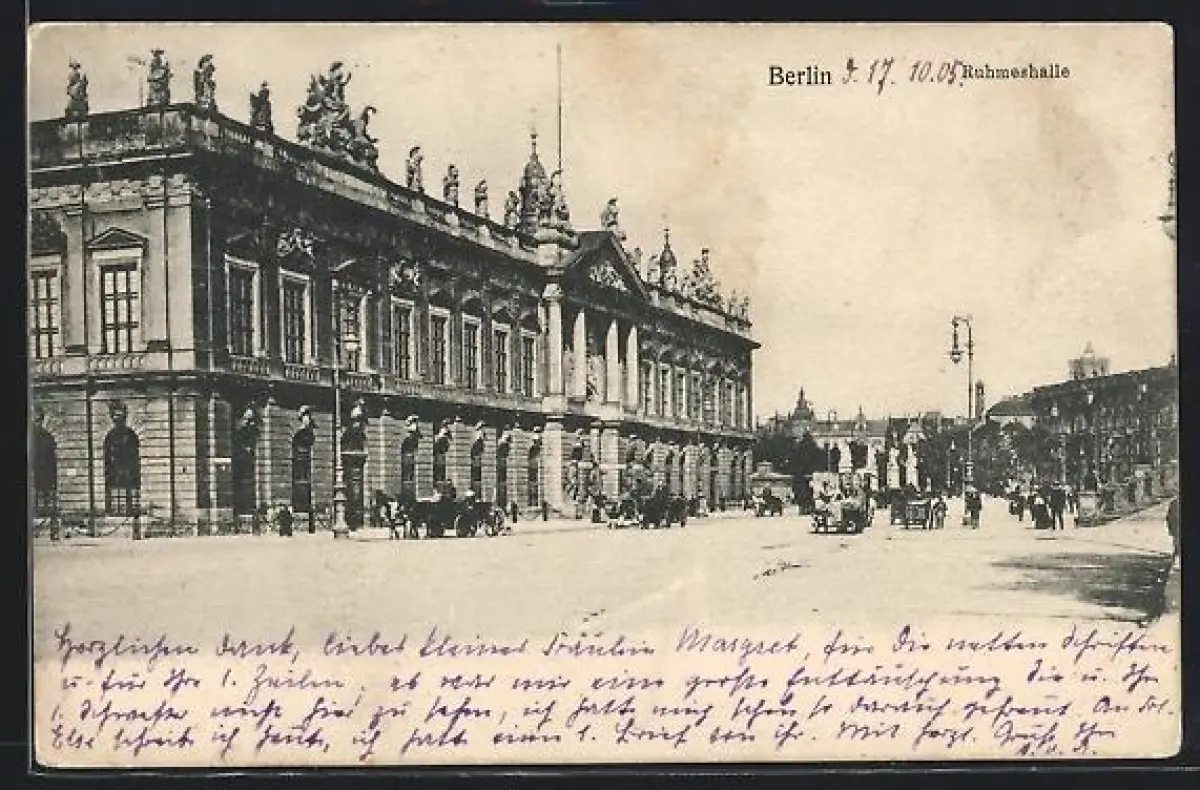 Berlin d. 17. 10. 05. Ruhmeshalle
Herzlichen Dank, liebes kleines Fräulein Margret, für die netten Schriften
u. für Ihre l. Zeilen, es war mir eine große Enttäuschung Sie u. Ihre
l. Schwester nicht hier zu sehen, ich hatte mich schon so darauf gefreut. An Frl.
Else schreib ich heute, ich hatte einen l. Brief von ihr. Mit herzl. Gruß Ihr